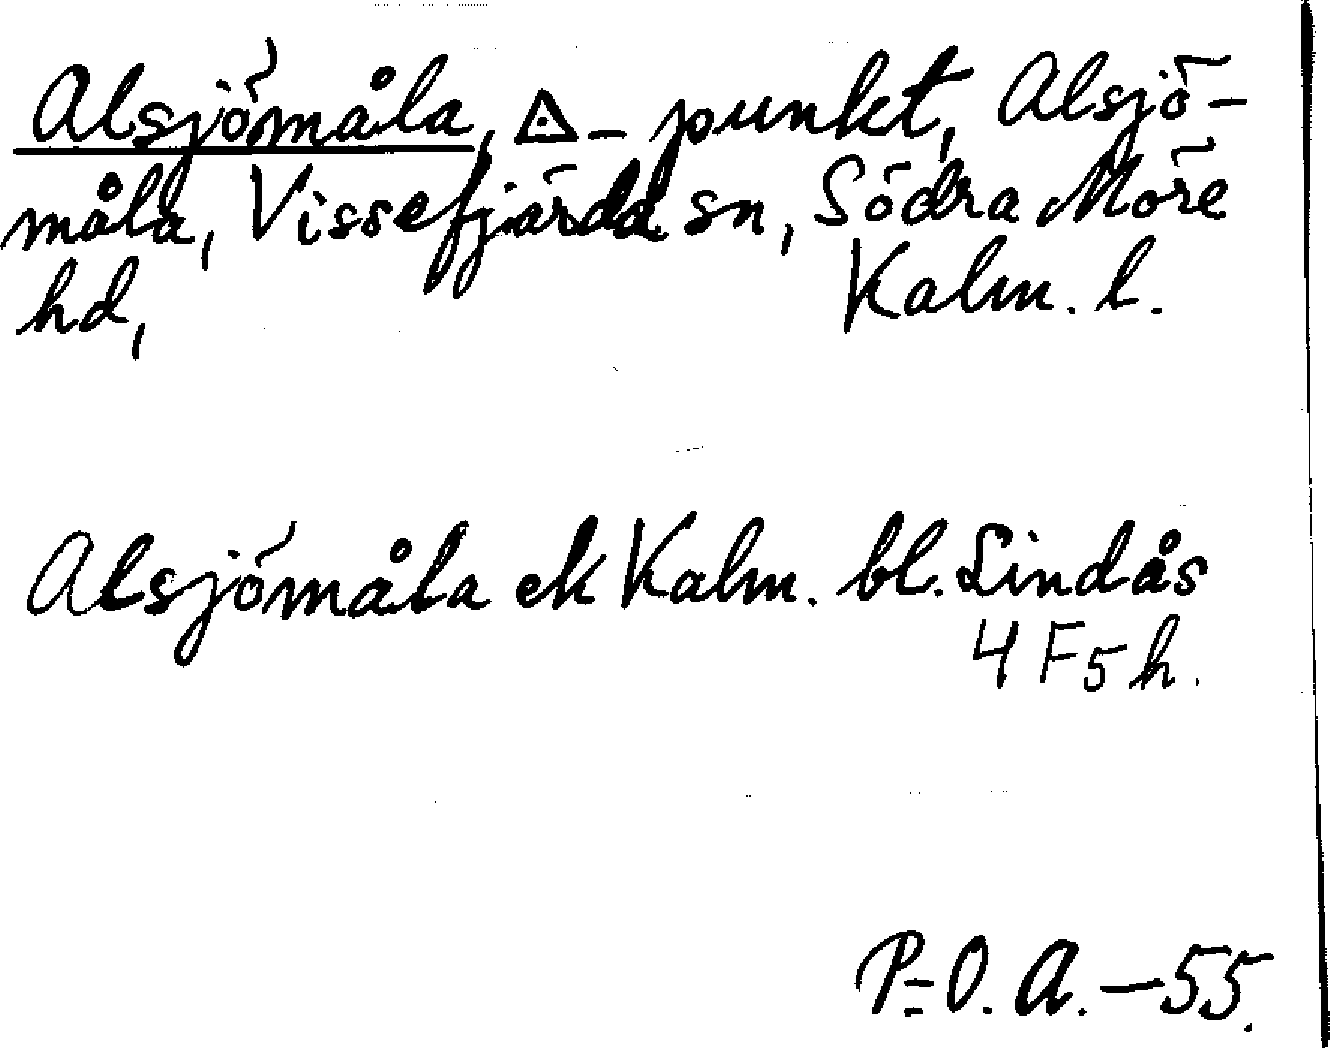 Alsjömåla, ◬ - punkt, Alsjö-
måla, Vissefjärda sn, Södra Möre
hd, Kalm. l.
Alsjömåla ek Kalm. bl. Lindås
4 F 5 h.
P.-O. A. - 55.